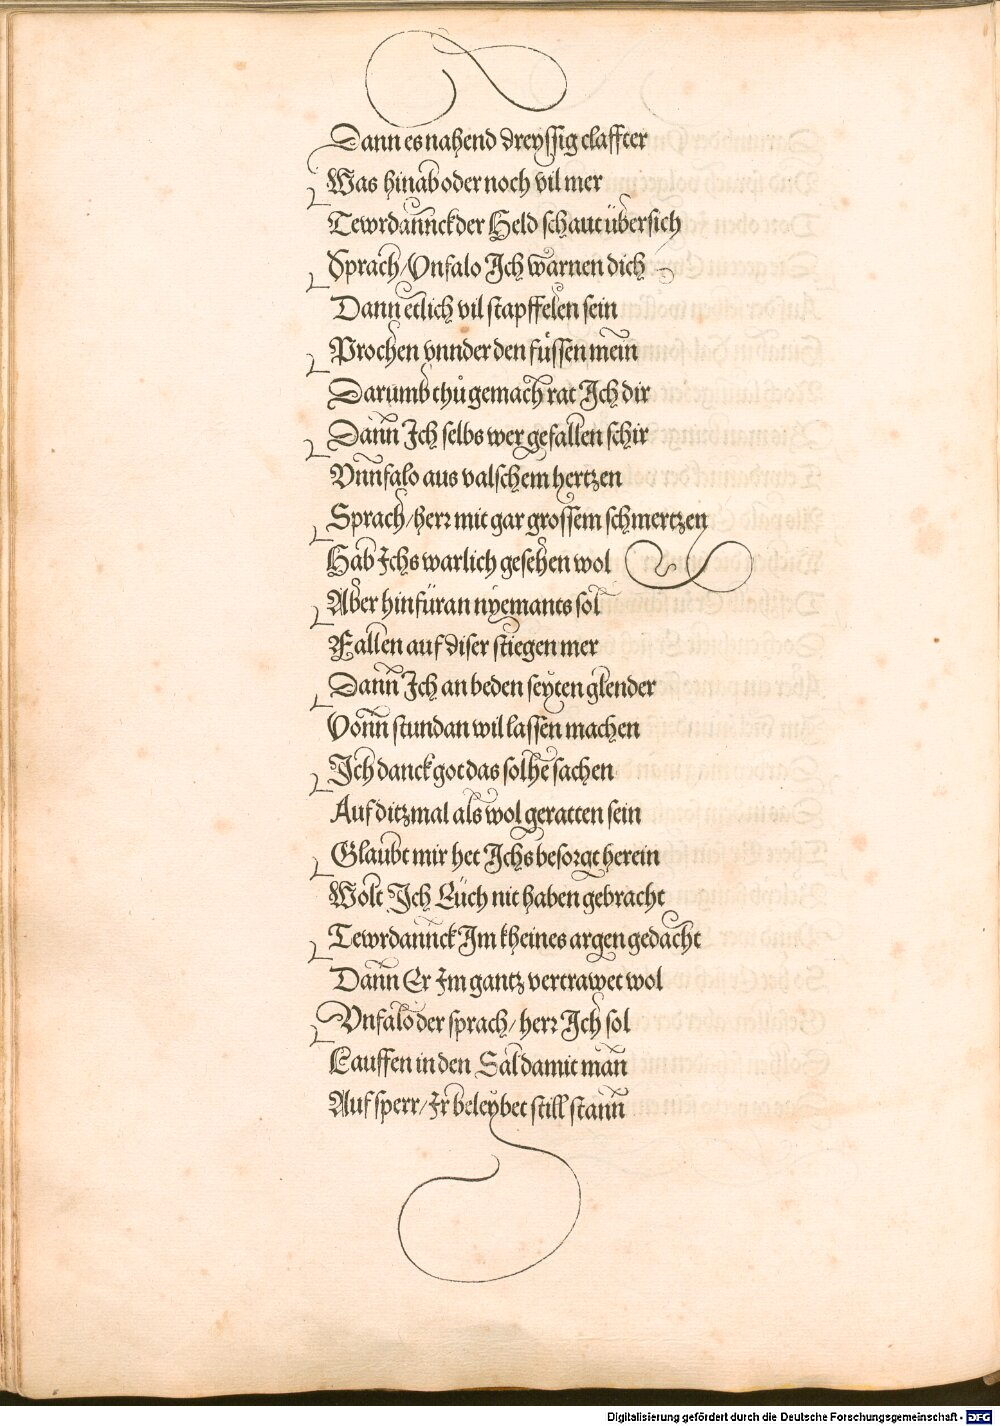 Dann es nahend dreyssig claffter
Was hinab oder noch vil mer
Tewrdannck der Held schaut übersich
Sprach/Vnfalo Ich warnen dich
Dann etlich vil stapffelen sein
Prochen vnnder den füssen mein
Darumb thů gemach rat Ich dir
Dann Ich selbs wer gefallen schir
Vnnfalo aus valschem hertzen
Sprach/herr mit gar grossem schmertzen
Hab Ichs warlich gesehen wol
Aber hinfüran nyemants sol
Fallen auf diser stiegen mer
Dann Ich an beden seyten glender
Vonn stundan wil lassen machen
Ich danck got das solhe sachen
Auf ditzmal als wol geratten sein
Glaubt mir het Ichs besorgt herein
Wolt Ich Eüch nit haben gebracht
Tewrdannck Im kheines argen gedacht
Dann Er Im gantz vertrawet wol
Vnfalo der sprach/herr Ich sol
Lauffen in den Sal damit man
Auf sperr/Ir beleybet still stann
Digitalisierung gefördert durch die Deutsche Forschungsgemeinschaft - DFG